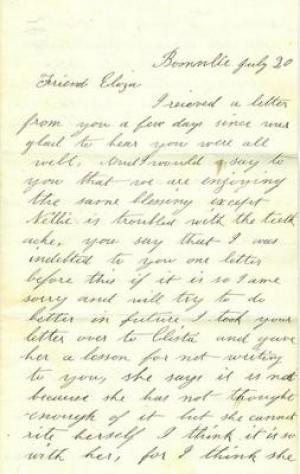 Bonnvlie July 20
Friend Eliza
I reieved a letter
from you a few days since was
glad to hear you were all
well, And I would say to
you that we are enjoying
the same blessing except
Nettie is troubled with the teeth
ache, you say that I was
indebted to you one letter
before this if it is so I ame
sorry and will try to do
better in future I took your
letter over to Clista and gave
her a lesson for not writing
to you, she says it is not
because she has not thought
enough of it but she cannot
rite herself I think it is so
with her, for I think she